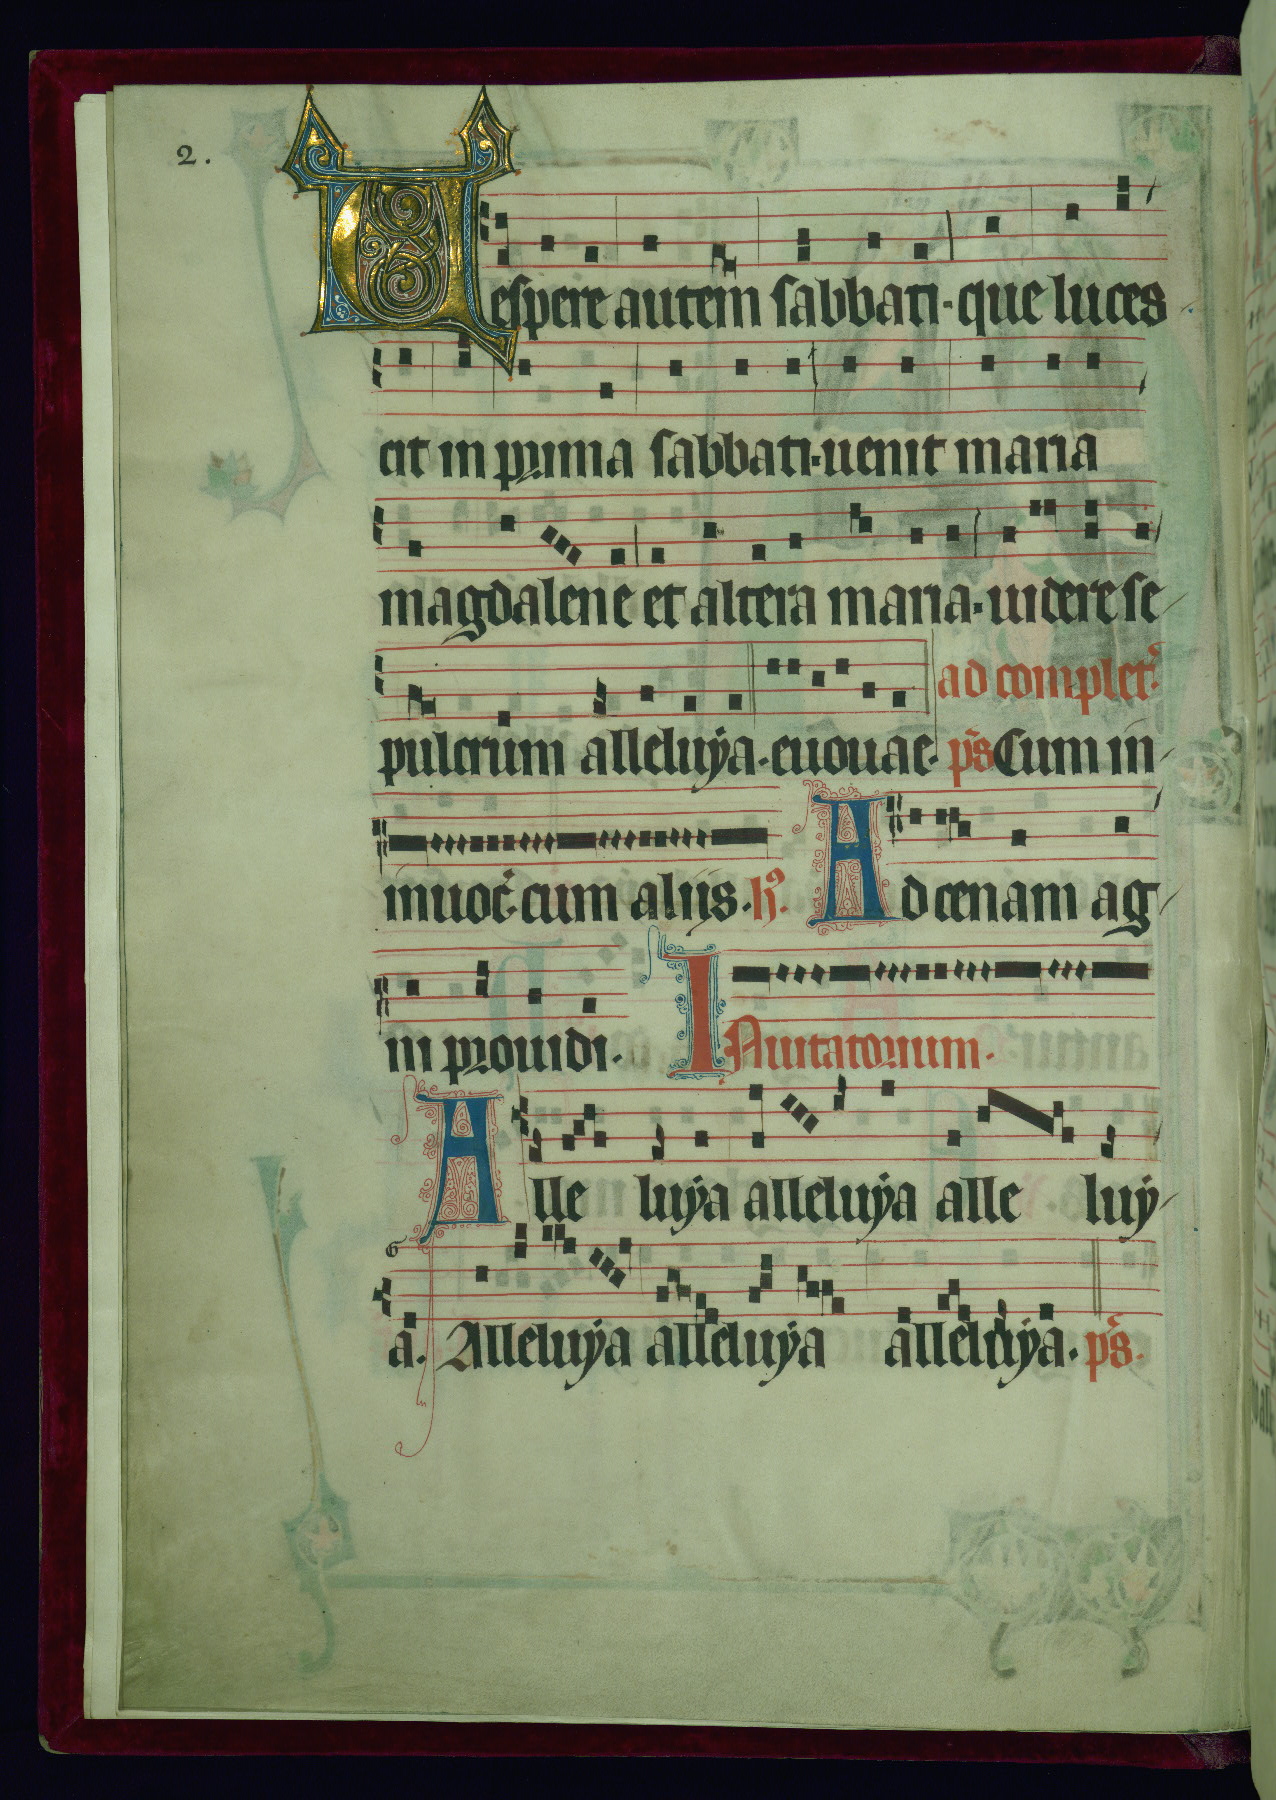 2.
Uespere autem sabbati · que luces
cit in prima sabbati · uenit maria
magdalene et altera maria · uidere se
pulcrum alleluya · euouae · ad complet̄.
ps̄ Cum in
inuoc̄ · cum aliis · R̄. Ad cenam ag
ni prouidi · INuitatorium ·
Alle luya alleluya alle luy
a. Alleluya alleluya alleluya · ps̄ ·